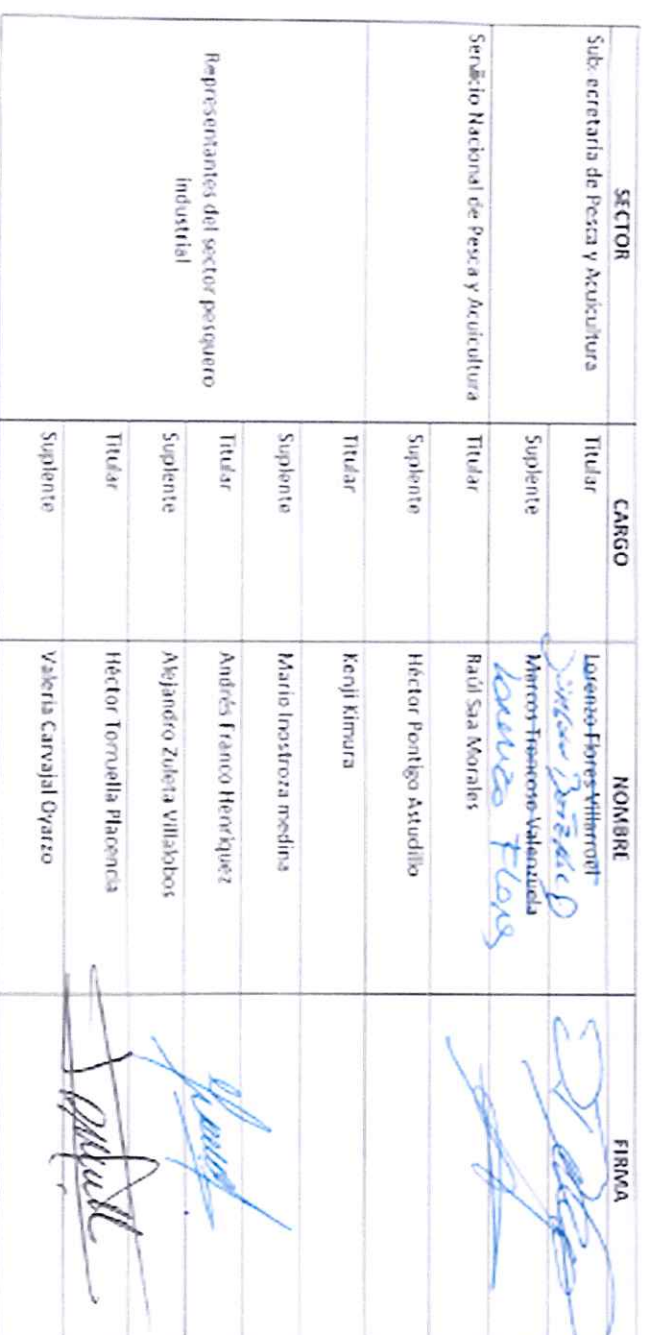 SECTOR CARGO NOMBRE FIRMA
Subsecretaría de Pesca y Acuicultura Titular Lorenzo Flores Villarroel
Suplente Marcos Troncoso Valenzuela
Lorenzo Flores
Servicio Nacional de Pesca y Acuicultura Titular Raúl Saa Morales
Suplente Héctor Pontigo Astudillo
Representantes del sector pesquero
industrial
Titular Kenji Kimura
Suplente Mario Inostroza medina
Titular Andrés Franco Henríquez
Suplente Alejandro Zuleta Villalobos
Titular Héctor Torruella Placencia
Suplente Valeria Carvajal Oyarzo